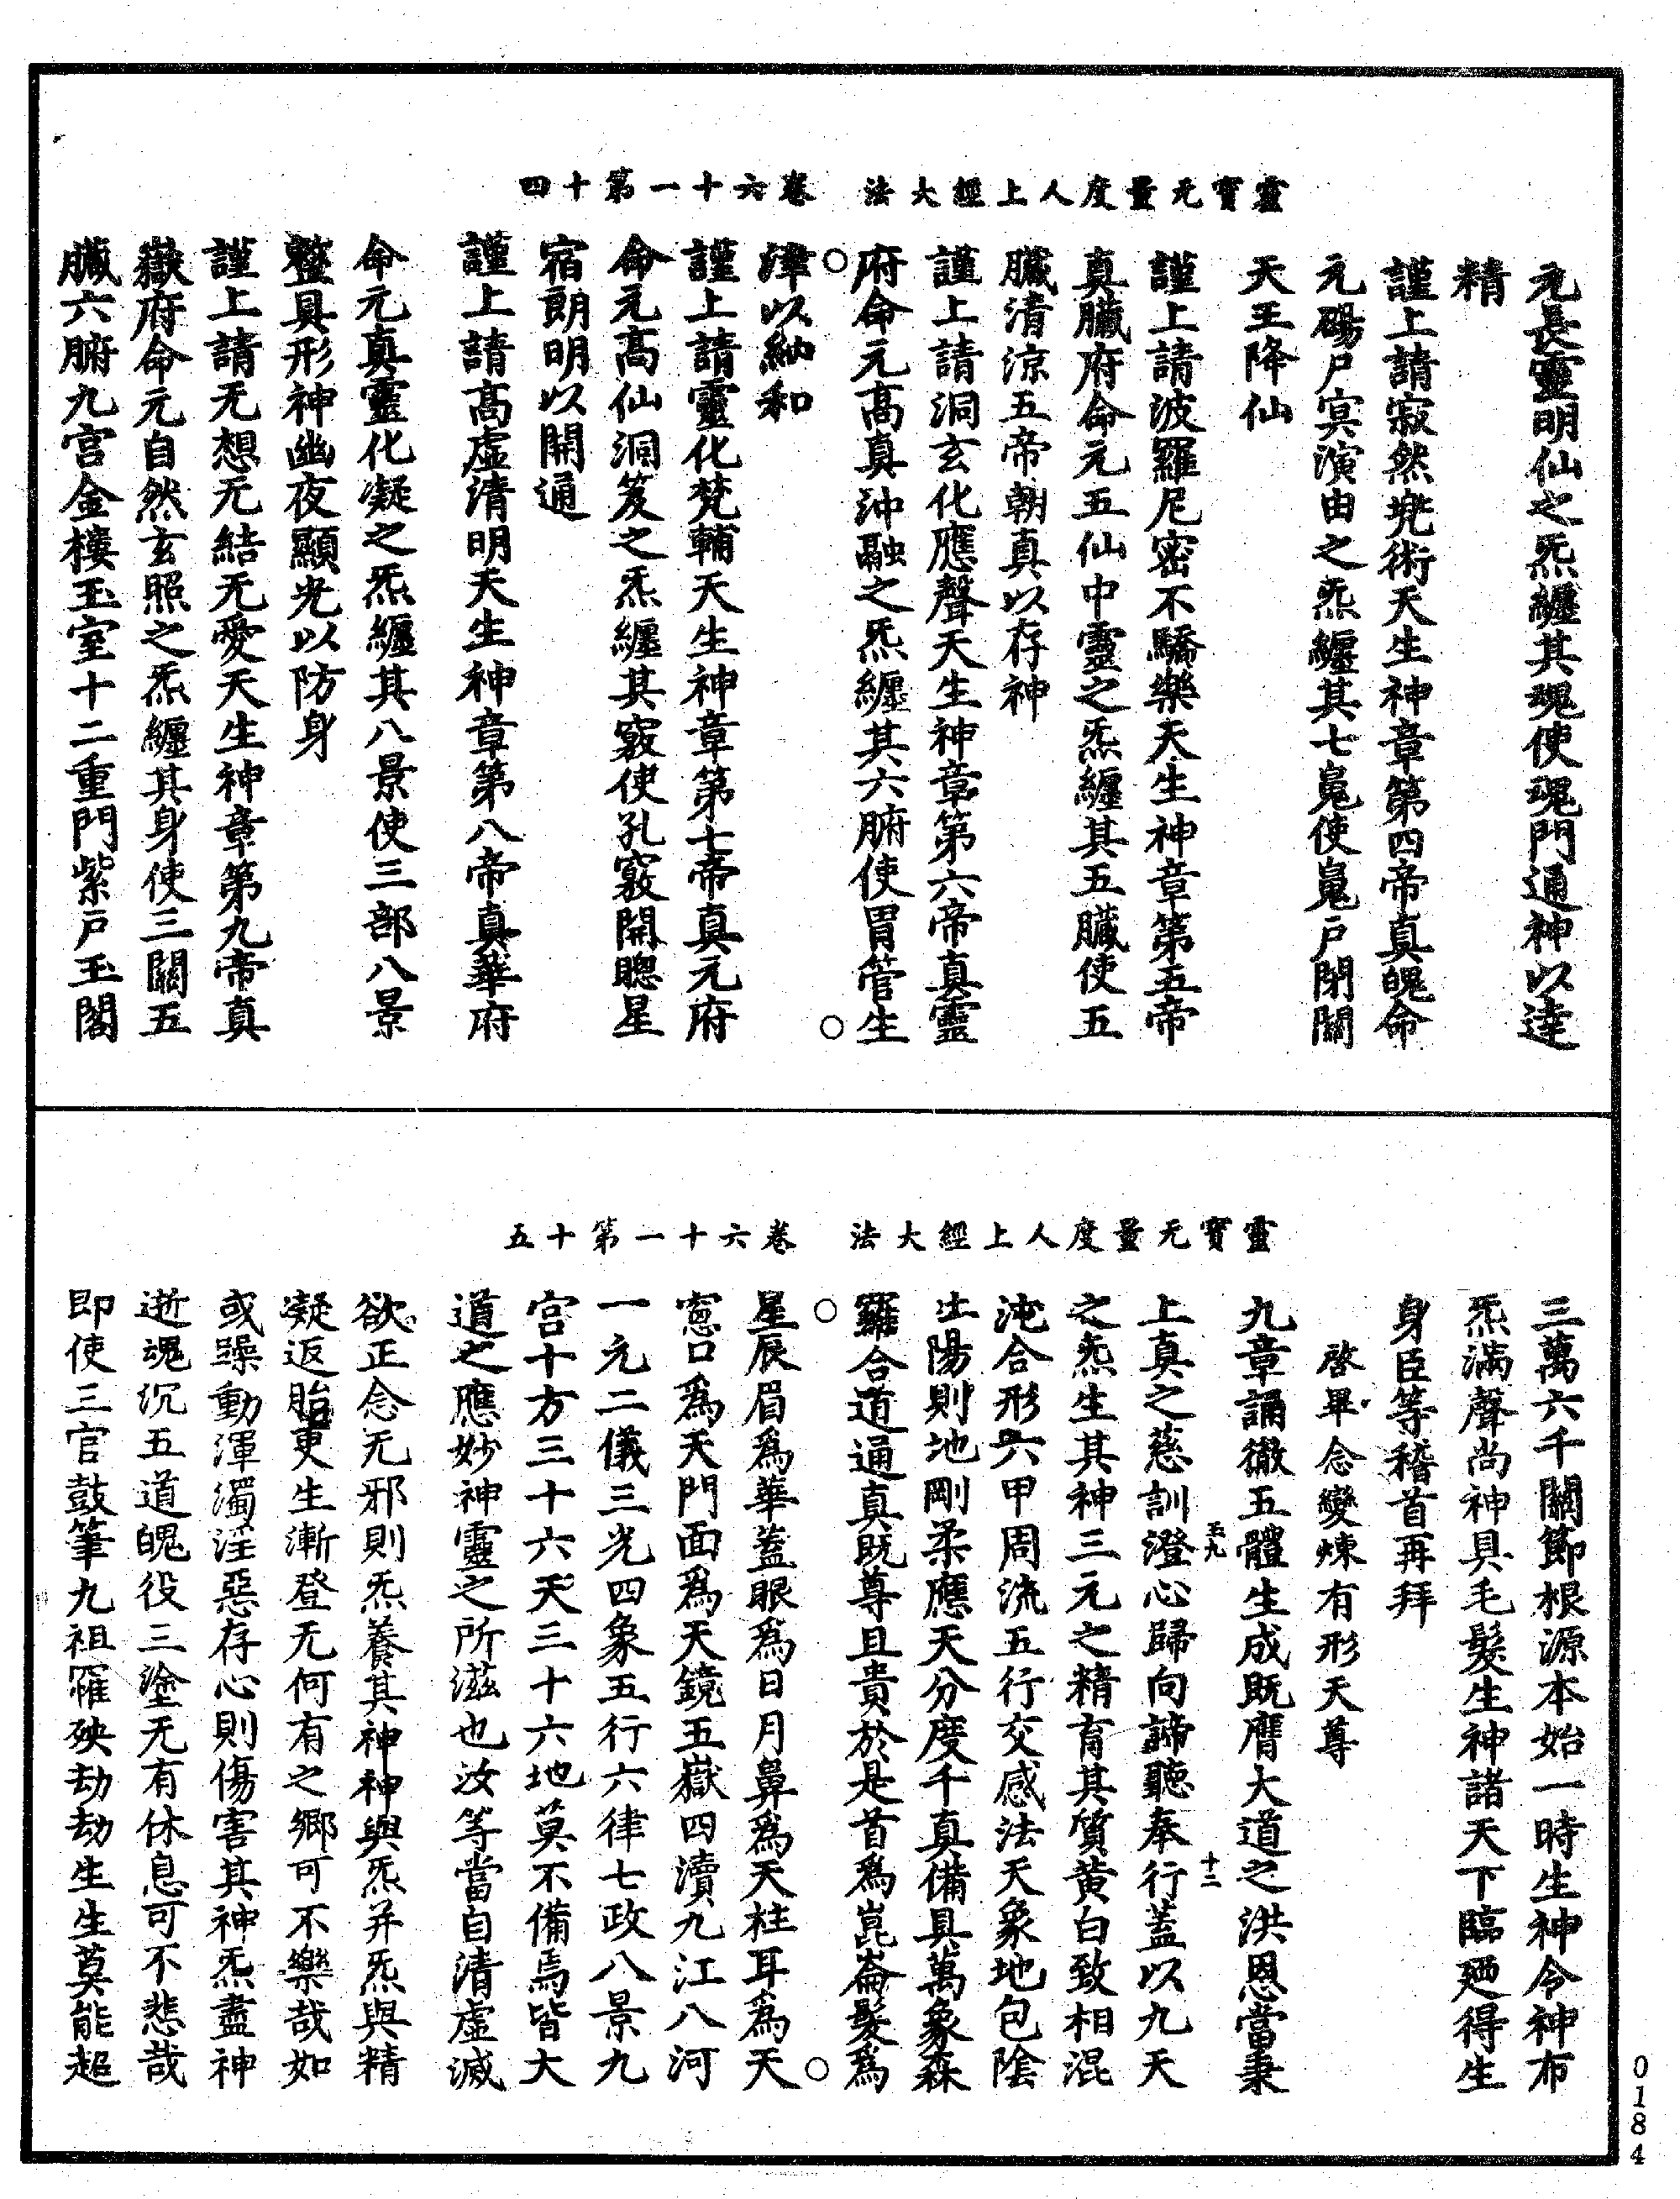 靈寶无量度人上經大法　卷六十一第十四
元長靈明仙之炁纏其魂使魂門通神以達
精
謹上請寂然兠術天生神章第四帝真魄命
元碭尸㝠演由之炁纏其七䰟使䰟戸閉關
天王降仙
謹上請波羅尼密不驕樂天生神章第五帝
真臟府命元五仙中靈之炁纏其五臟使五
臟清涼五帝朝真以存神
謹上請洞玄化應聲天生神章第六帝真靈
府命元高真沖融之炁纏其六腑使胃管生
津以納和
謹上請靈化梵輔天生神章第七帝真元府
命元高仙洞笈之炁纏其竅使孔竅開聰星
宿朗明以開通
謹上請高虛清明天生神章第八帝真華府
命元真靈化凝之炁纏其八景使三部八景
整具形神幽夜顯光以防身
謹上請无想无結无愛天生神章第九帝真
嶽府命元自然玄照之炁纏其身使三關五
臟六腑九宫金樓玉室十二重門紫戸玉閣
靈寶无量度人上經大法　卷六十一第十五
三萬六千關節根源本始一時生神令神布
炁滿聲尚神具毛髮生神諸天下臨廼得生
身臣等稽首再拜
啓畢念變煉有形天尊
九章誦徹五體生成既膺大道之洪恩當秉
上真之慈訓澄心歸向諦聽奉行蓋以九天
之炁生其神三元之精育其質黄白致相混
沌合形六甲周流五行交感法天象地包陰
出陽則地剛柔應天分度千真備具萬象森
羅合道通真既尊且貴於是首為崑崙髮為
星辰眉為華蓋眼為日月鼻為天柱耳為天
窻口為天門面為天鏡五嶽四瀆九江八河
一元二儀三光四象五行六律七政八景九
宫十方三十六天三十六地莫不備焉皆大
道之應妙神靈之所滋也汝等當自清虛滅
欲正念无邪則炁養其神神與炁并炁與精
凝返胎更生漸登无何有之鄉可不樂哉如
或躁動渾濁淫惡存心則傷害其神炁盡神
逝魂沉五道魄役三塗无有休息可不悲哉
即使三官鼓筆九祖罹殃劫劫生生莫能超
0184